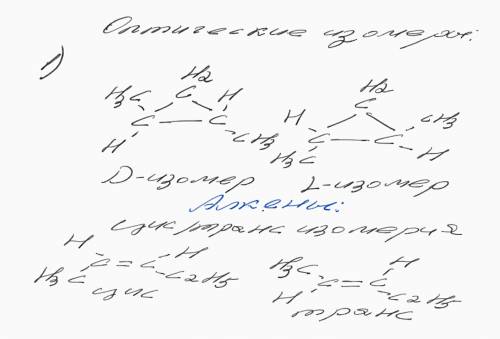 Оптические изомеры:
1)
H2
H3C C H
C C
H CH3
H2
C
H CH3
C C
H3C H
D-изомер L-изомер
Алкены:
цис/транс изомерия
H H
C=C
H3C C2H5
цис
H3C H
C=C
H C2H5
транс